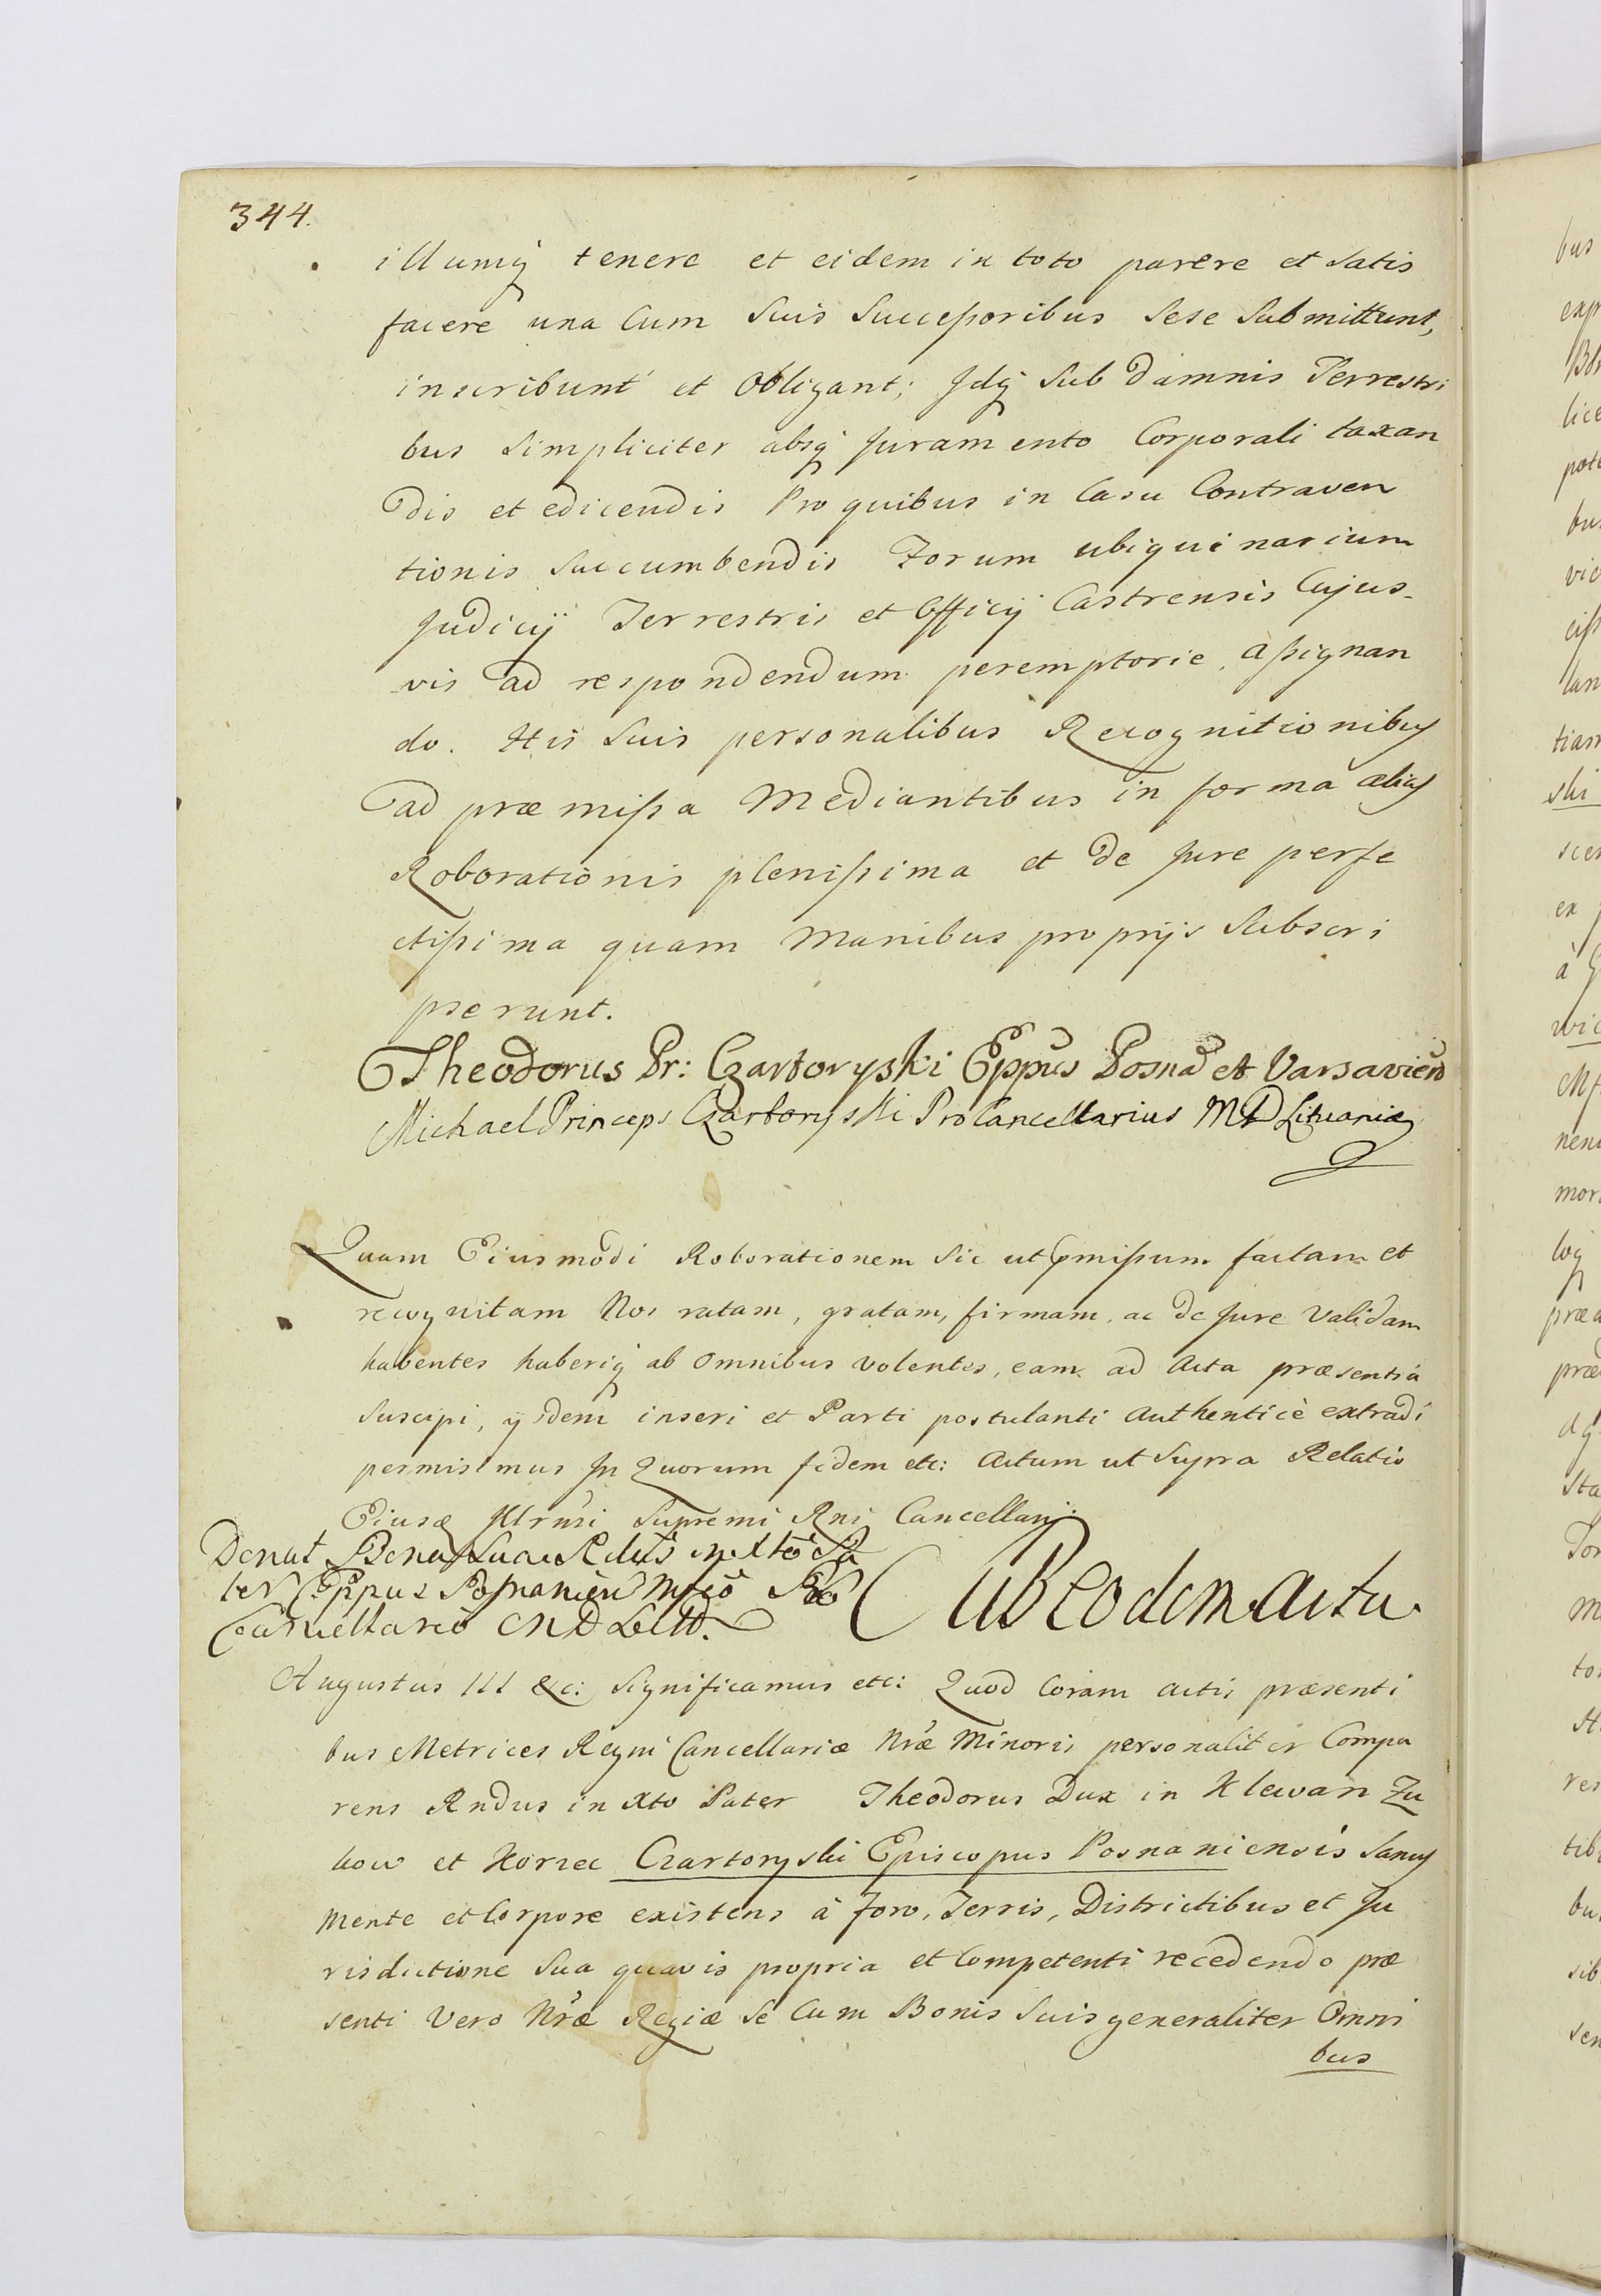 344.
illumq́ tenere et eidem in toto parere et Satis
facere una Cum Suis Succeſsoribus Sese Submittunt,
inscribunt et Obligant; Jdq́ Sub Damnis Terrestri
bus Simpliciter absq́ Juramento Corporali taxan
dis et edicendis Pro quibus in Casu Contraven
tionis Succumbendis Forum ubiquinarium
Judicÿ Terrestris et Officÿ Castrensis Cujus-
vis ad respondendum peremptorie aſsignan
do. His Suis personalibus Recognitionibus
ad præmiſsa Mediantibus in forma alias
Roborationis pleniſsima et de Jure perfe
ctiſsima quam Manibus proprijs Subscri
pserunt.
Theodorus Pr: Czartoryski Eppus Posnã et Varsavień
Michael Princeps Czartoryski ProCancellarius MD Lituaniæ
Quam Eiusmodi Roborationem Sic ut pmiſsum factam et
recognitam Nos ratam, gratam, firmam, ac de Jure Validam
habentes haberiq́ ab Omnibus volentes, eam ad Acta præsentia
Suscipi, ÿsdem inseri et Parti postulanti Authenticè extradi
permisimus Jn Quorum fidem etc: Actum ut Supra Relatio
Eiusd Jllrmi Supremi Rni Cancellarij.
Donat Bona Sua
ter Eppus Posnanień
Cancellario MD Litt.
Sub eodem Actu
Augustus III &c: Significamus etc: Quod Coram Actis præsenti
bus Metrices Regni Cancellariæ Nræ Minoris personaliter Compa
rens Rndus in Xto Pater Theodorus Dux in Klewan Zu
kow et Korzec Czartoryski Episcopus Posnaniensis Sanus
Mente et Corpore existens à Foro, Terris, Districtibus et Ju
risdictione Sua quavis propria et Competenti recedendo præ
senti Vero Nræ Regiæ Se Cum Bonis Suis generaliter Omni
bus